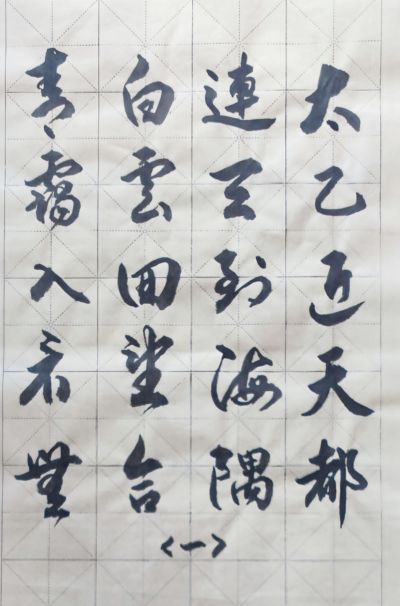 太乙近天都
連天到海隅
白雲回望合
青靄入看無
<一>